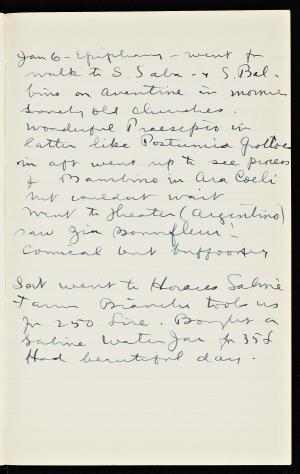 Jan 6 - Epiphany - went for
walk to S. Saba - & S. Bal-
bino on Aventine in morning
Lovely old churches.
Wonderful Praesepio in
latter like Postumia Grottoes
in aft went up to see process
of Bambino in Ara Coeli
but couldn't wait
Went to theater (Argentina)
saw Zia Bonnefleur -
comical but buffoonery
Sat went to Horaces Sabine
Farm Bianchi took us
for 250 Lire. Bought a
Sabine Water Jar for 35 L
Had beautiful day.